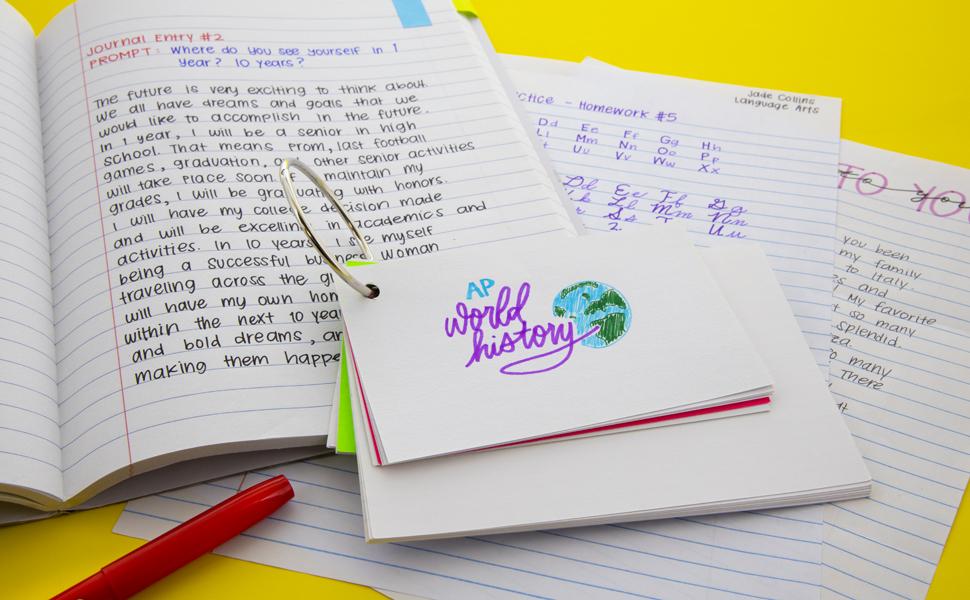 Journal Entry #2
PROMPT: Where do you see yourself in 1
year? 10 years?
The future is very exciting to think about.
We all have dreams and goals that we
would like to accomplish in the future.
In 1 year, I will be a senior in high
school. That means prom, last football
games, graduation, other senior activities
will take place soon. maintain my
grades, I will be graduating with honors.
I will have my college decision made
and will be excelling in academics and
activities. In 10 years, I see myself
being a successful business woman
traveling across the
will have my own
within the next 10
and bold dreams,
making them
Jade Collins
Language Arts
Homework #5
Dd Ee Ff Gg Hh
Ll Mm Nn Oo Pp
Uu Vv Ww Xx
Dd Ee Ff Gg
Ll Mm Nn
Ss
Uu
AP
world
history
TO YO
you been
my family
to Italy.
and
My favorite
so many
splendid.
many
There